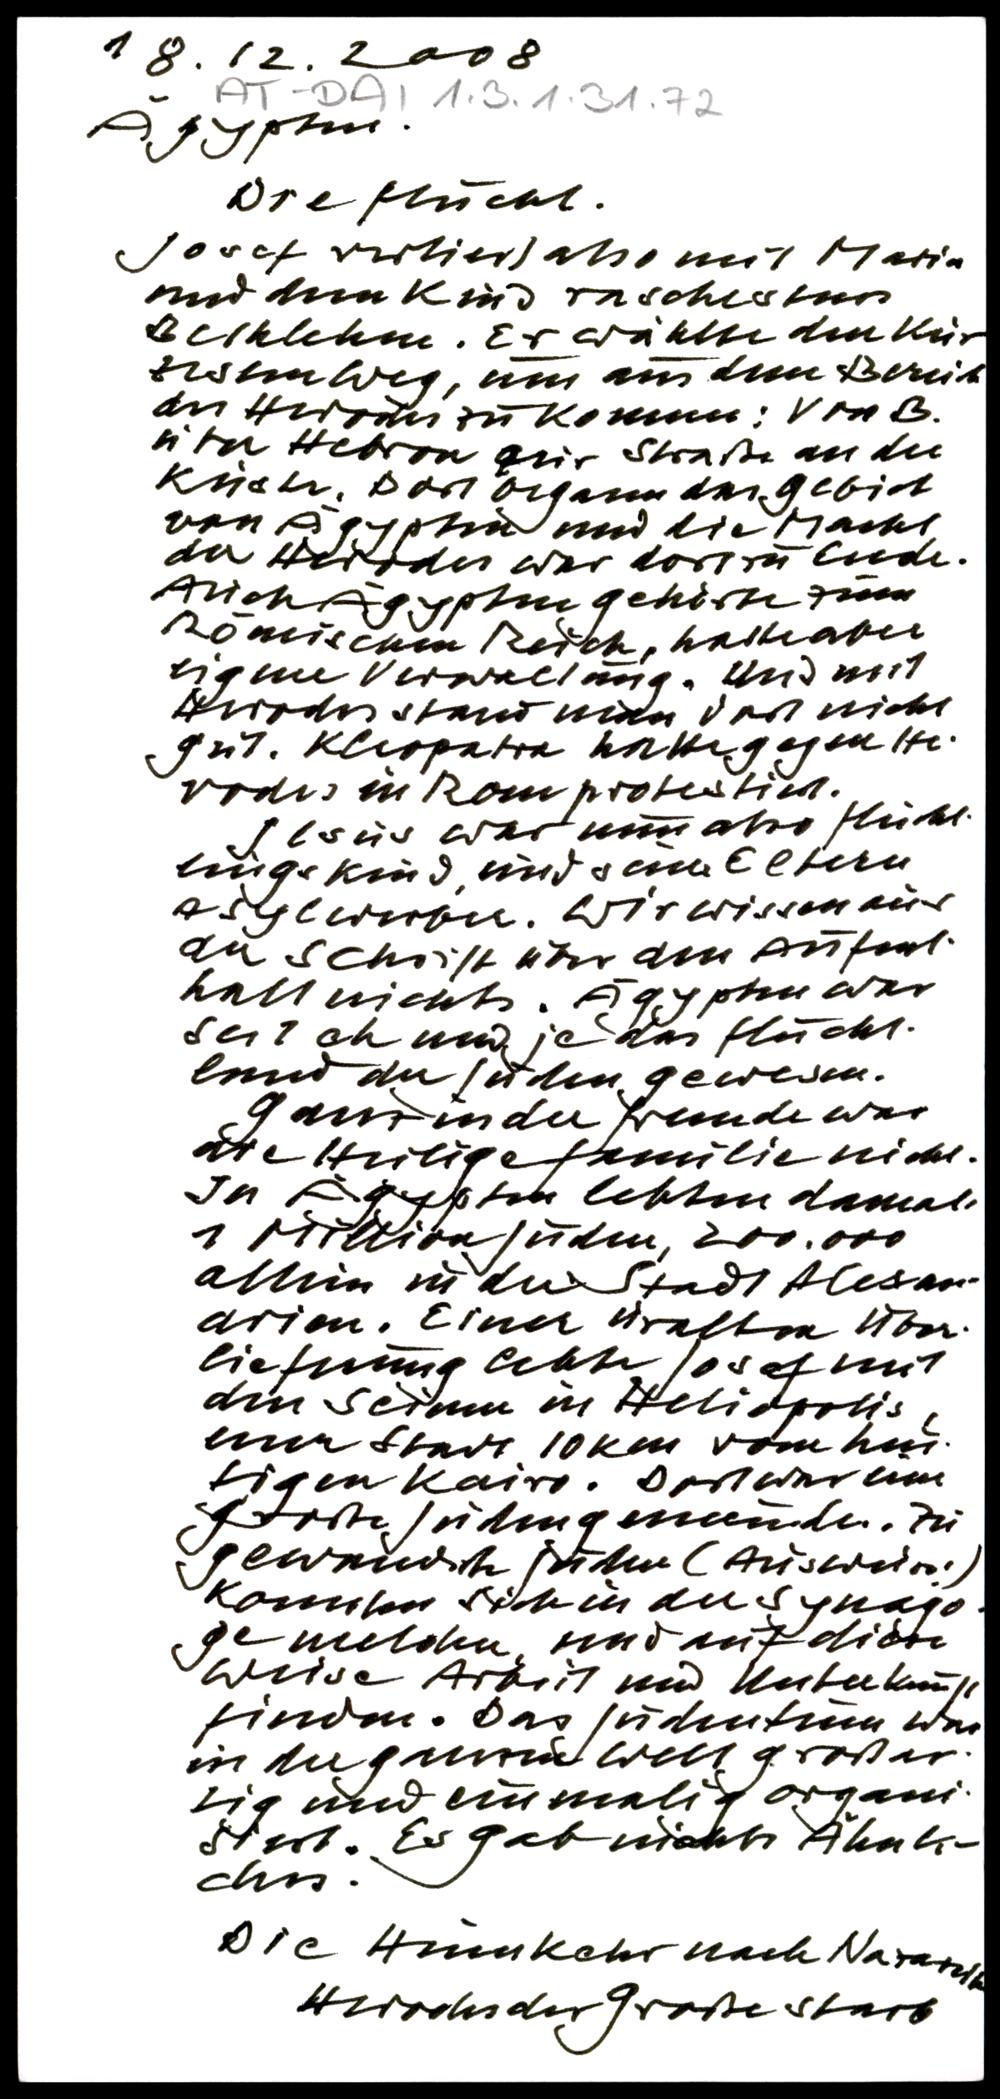 18.12.2008
AT-DAI 1.3.1.31.72
Ägypten.
Die Flucht.
Josef verließ also mit Maria
und dem Kind raschestens
Bethlehem. Er wählte den kür
zesten Weg, um aus dem Bereich
des Herodes zu kommen: Von B.
über Hebron zur Straße an der
Küste. Dort begann das Gebiet
von Ägypten und die Macht
des Herodes war dort zu Ende.
Auch Ägypten gehörte zum
Römischen Reich, hatte aber
eigene Verwaltung. Und mit
Herodes stand man dort nicht
gut. Kleopatra hatte gegen He-
rodes in Rom protestiert.
Jesus war nun also Flücht-
lingskind, und seine Eltern
Asylwerber. Wir wissen aus
der Schrift über den Aufent-
halt nichts. Ägypten war
seit eh und je das Flucht-
land der Juden gewesen.
Ganz in der Fremde war
die Heilige Familie nicht.
In Ägypten lebten damals
1 Million Juden, 200.000
allein in der Stadt Alexan-
drien. Einer uralten Über-
lieferung lebte Josef mit
den Seinen in Heliopolis,
einer Stadt 10 km vom heu-
tigen Kairo. Dort war eine
große Judengemeinde. Zu
gewanderte Juden (Ausweis!)
konnten sich in der Synago-
ge melden, und auf diese
Weise Arbeit und Unterkunft
finden. Das Judentum war
in der ganzen Welt großar-
tig und einmalig organi-
siert. Es gab nichts Ähnli-
ches.
Die Heimkehr nach Nazareth
Herodes der Große starb